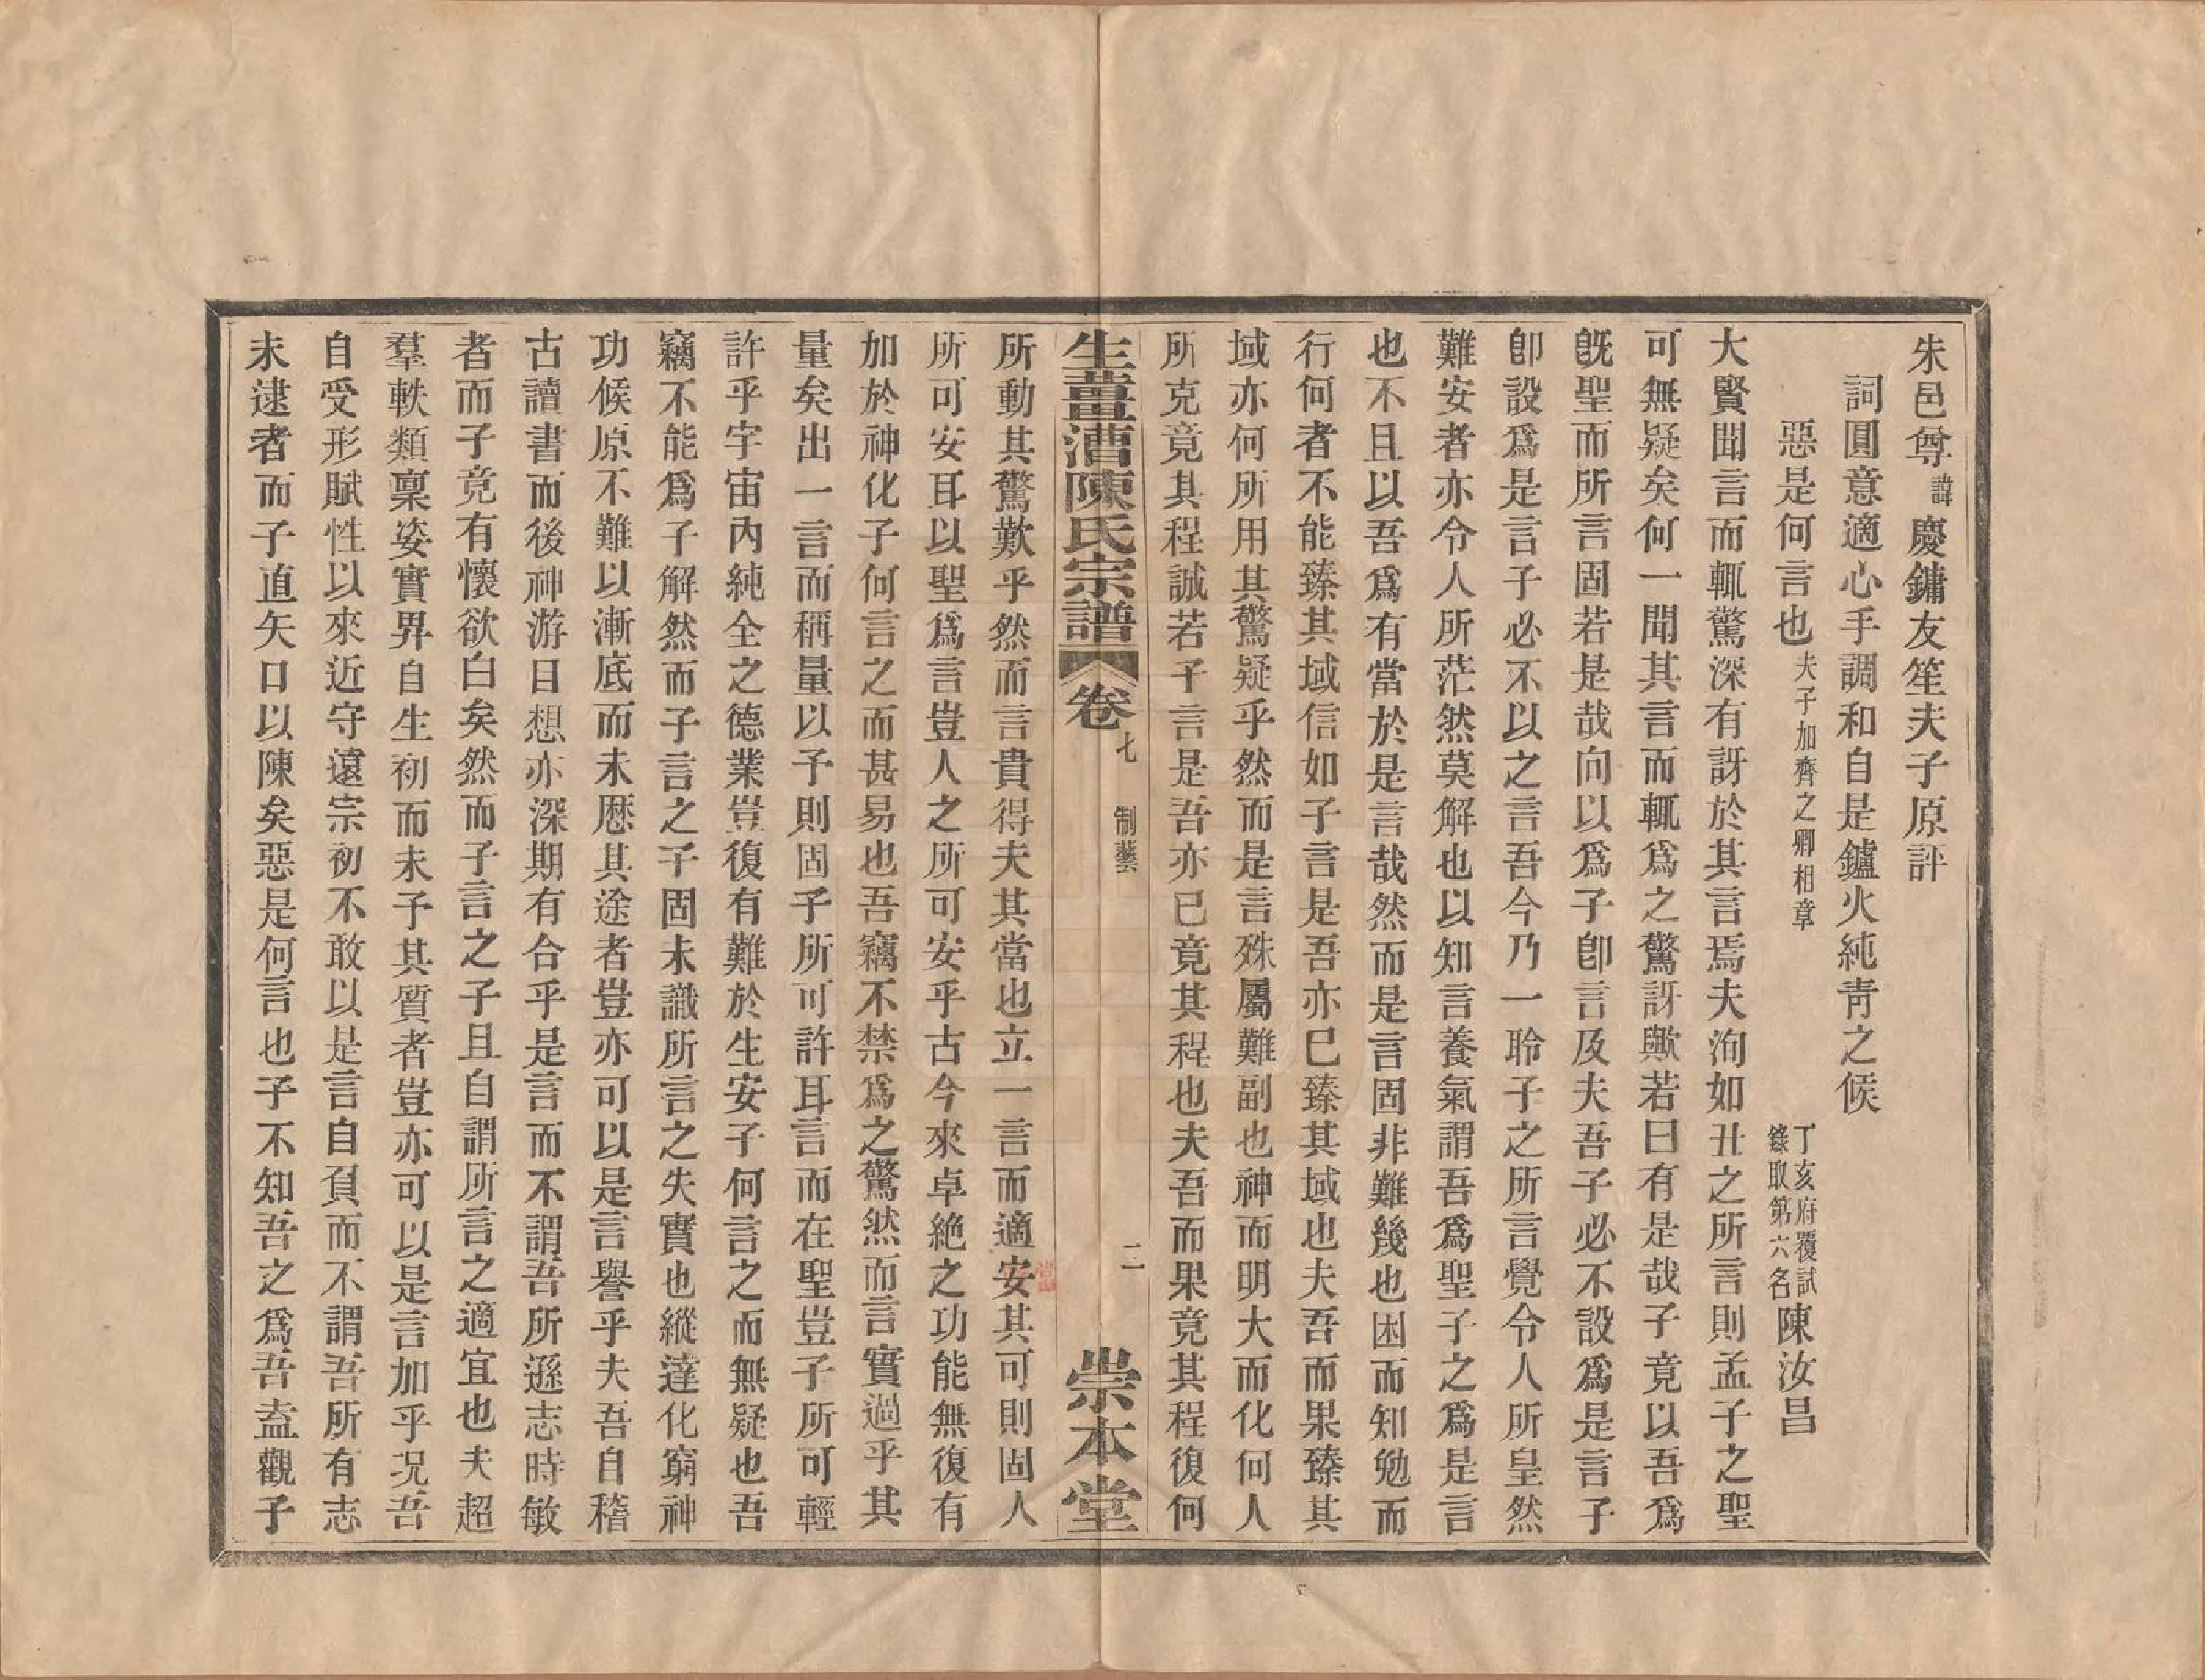 朱邑尊諱慶鏞友笙夫子原評
詞圓意適心手調和自是鑪火純青之候
惡是何言也夫子加齊之卿相章丁亥府覆試錄取第六名陳汝昌
大賢聞言而輒驚深有訝於其言焉夫洵如丑之所言則孟子之聖
可無疑矣何一聞其言而輒爲之驚訝歟若曰有是哉子竟以吾爲
旣聖而所言固若是哉向以爲子卽言及夫吾子必不設爲是言子
卽設爲是言子必不以之言吾今乃一聆子之所言覺令人所皇然
難安者亦令人所茫然莫解也以知言養氣謂吾爲聖子之爲是言
也不且以吾爲有當於是言哉然而是言固非難幾也困而知勉而
行何者不能臻其域信如子言是吾亦已臻其域也夫吾而果臻其
域亦何所用其驚疑乎然而是言殊屬難副也神而明大而化何人
所克竟其程誠若子言是吾亦已竟其程也夫吾而果竟其程復何
生薑漕陳氏宗譜 卷七 制藝 二 崇本堂
所動其驚歎乎然而言貴得夫其當也立一言而適安其可則固人
所可安耳以聖爲言豈人之所可安乎古今來卓絶之功能無復有
加於神化子何言之而甚易也吾竊不禁爲之驚然而言實過乎其
量矣出一言而稱量以予則固予所可許耳言而在聖豈子所可輕
許乎宇宙內純全之德業豈復有難於生安子何言之而無疑也吾
竊不能爲子解然而子言之子固未識所言之失實也縱達化窮神
功候原不難以漸底而未歷其途者豈亦可以是言譽乎夫吾自稽
古讀書而後神游目想亦深期有合乎是言而不謂吾所遜志時敏
者而子竟有懷欲白矣然而子言之子且自謂所言之適宜也夫超
羣軼類稟姿實畀自生初而未予其質者豈亦可以是言加乎況吾
自受形賦性以來近守遠宗初不敢以是言自負而不謂吾所有志
未逮者而子直矢口以陳矣惡是何言也子不知吾之爲吾盍觀子